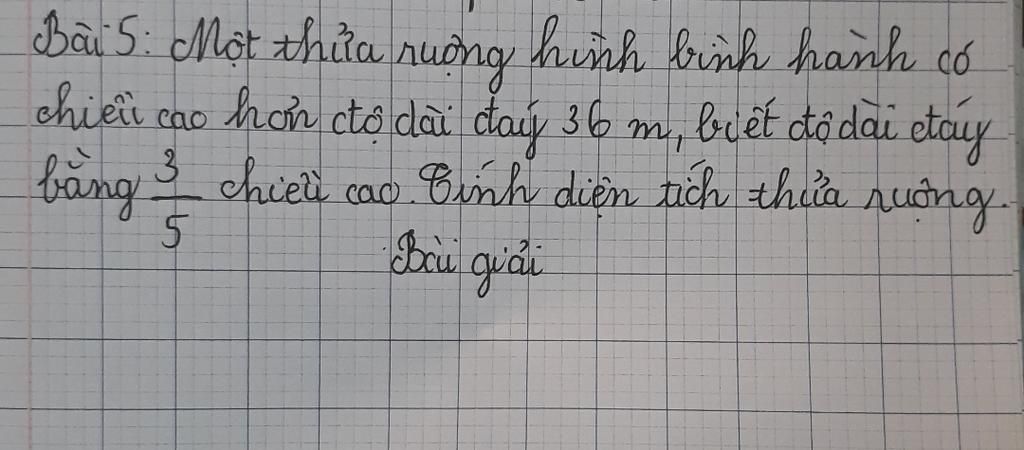 Bài 5: Một thửa ruộng hình bình hành có
chiều cao hơn độ dài đáy 36 m, biết độ dài đáy
bằng 3/5 chiều cao. Tính diện tích thửa ruộng.
Bài giải